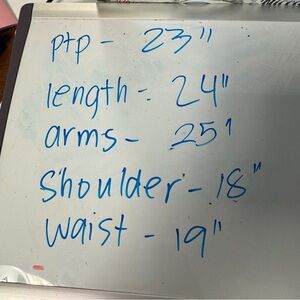 ptp - 23"
length - 24"
arms - 25"
Shoulder - 18"
waist - 19"